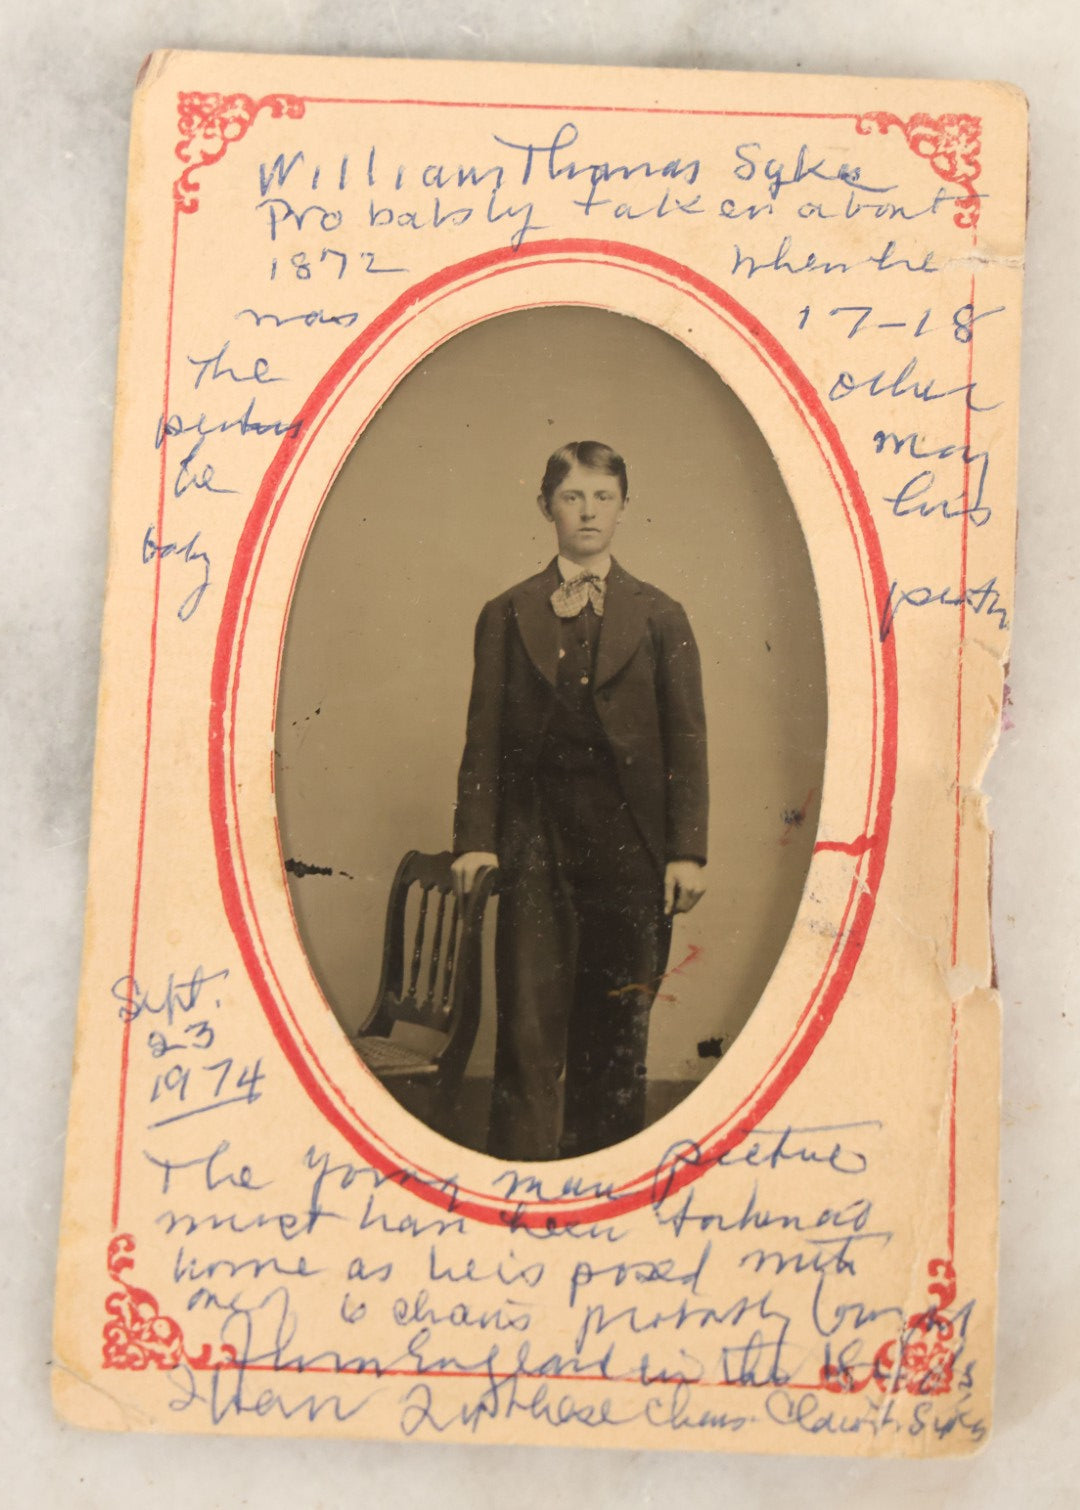 William Thomas Sykes
Probably taken about
1872 when he
was 17-18
The other
picture may
be his
baby picture
Sept.
23
1974
The young man picture
must have been taken at
home as he is posed with
one of 6 chairs probably brought
from England in the 1840's
I have 2 of these chairs. Sykes